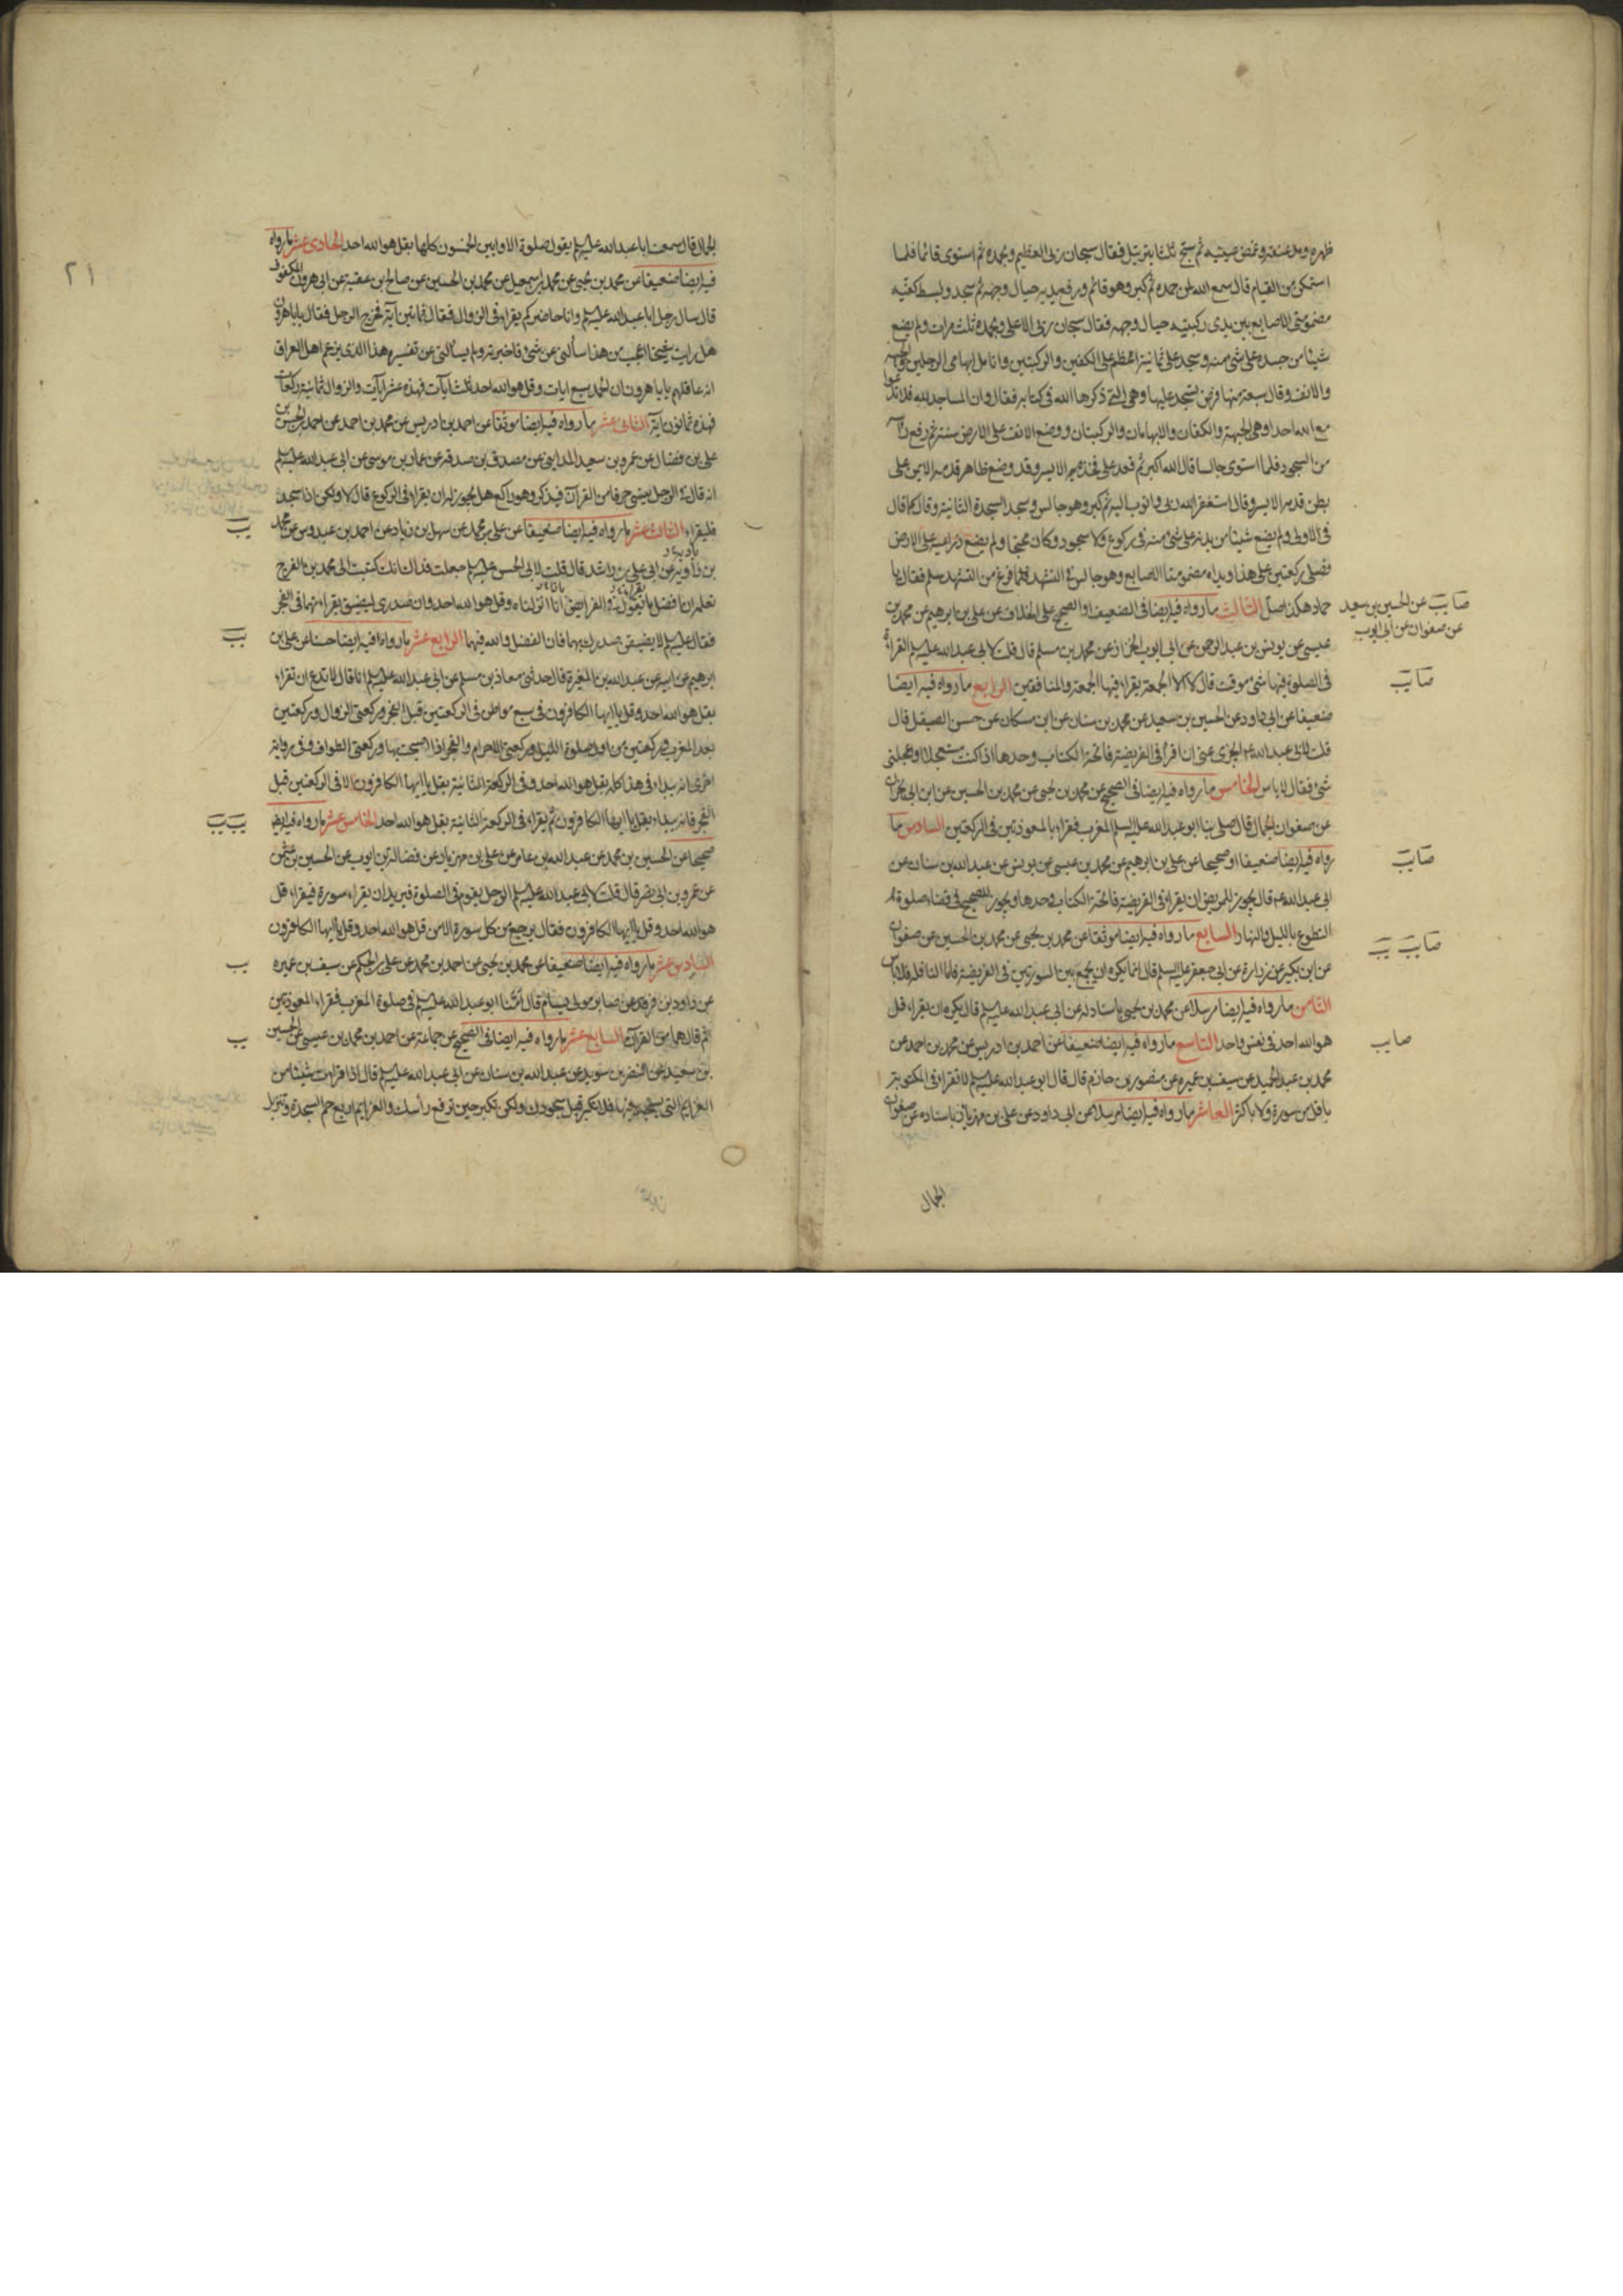 ظهره ومد عنقه وغمض عينيه ثم سبح ثلثا بترتيل فقال سبحان ربى العظيم وبحمده ثم استوى قائما فلما
استمكن من القيام قال سمع الله لمن حمده ثم كبر وهو قائم ورفع يديه حيال وجهه ثم سجد وبسط كفيه
مضمومتى الاصابع بين يدى ركبتيه حيال وجهه فقال سبحان ربى الاعلى وبحمده ثلث مرات ولم يضع
شيئا من جسده على شئ منه وسجد على ثمانية اعظم على الكفين والركبتين وانامل ابهامى الرجلين والجبهة
والانف وقال سبعة منها فرض يسجد عليها وهى التى ذكرها الله فى كتابه فقال وان المساجد لله فلا تدعوا
مع الله احدا وهى الجبهة والكفان والابهامان والركبتان ووضع الانف على الارض سنة ثم رفع رأسه
من السجود فلما استوى جالسا قال الله اكبر ثم قعد على فخذه الايسر وقد وضع ظاهر قدمه الايمن على
بطن قدمه الايسر وقال استغفر الله ربى واتوب اليه ثم كبر وهو جالس وسجد السجدة الثانية وقال كما قال
فى الاولى ولم يضع شيئا من بدنه على شئ منه فى ركوع ولا سجود وكان مجنحا ولم يضع ذراعيه على الارض
فصلى ركعتين على هذا ويداه مضمومتا الاصابع وهو جالس فى التشهد فلما فرغ من التشهد سلم فقال يا
حماد هكذا صل الثالث ما رواه فيه ايضا فى الضعيف او الصحيح على الخلاف عن على بن ابرهيم عن محمد بن
صايب عن الحسين بن سعيد
عن صفوان عن ابى ايوب
عيسى عن يونس بن عبد الرحمن عن ابى ايوب الخزاز عن محمد بن مسلم قال قلت لابى عبد الله عليه السلم القراءة
فى الصلوة فيها شئ موقت قال لا الا الجمعة يقراء فيها الجمعة والمنافقين الرابع ما رواه فيه ايضا
صايب
ضعيفا عن ابى داود عن الحسين بن سعيد عن محمد بن سنان عن ابن مسكان عن حسن الصيقل قال
قلت لابى عبد الله ع ايجزى عنى ان اقرأ فى الفريضة فاتحة الكتاب وحدها اذا كنت مستعجلا او اعجلنى
شئ فقال لا باس الخامس ما رواه فيه ايضا فى الصحيح عن محمد بن يحيى عن محمد بن الحسين عن ابن ابى نجران
عن صفوان الجمال قال صلى بنا ابو عبد الله عليه السلم المغرب فقراء بالمعوذتين فى الركعتين السادس ما
رواه فيه ايضا ضعيفا او صحيحا عن على بن ابرهيم عن محمد بن عيسى عن يونس عن عبد الله بن سنان عن
صايب
ابى عبد الله ع قال يجوز للمريض ان يقراء فى الفريضة فاتحة الكتاب وحدها ويجوز للصحيح فى قضاء صلوة
التطوع بالليل والنهار السابع ما رواه فيه ايضا موثقا عن محمد بن يحيى عن محمد بن الحسين عن صفوان
صايب يب
عن ابن بكير عن زرارة عن ابى جعفر عليه السلم قال انما يكره ان يجمع بين السورتين فى الفريضة فاما النافلة فلا باس
الثامن ما رواه فيه ايضا مرسلا عن محمد بن يحيى باسناد له عن ابى عبد الله عليه السلم قال يكره ان يقراء قل
هو الله احد فى نفس واحد التاسع ما رواه فيه ايضا ضعيفا عن احمد بن ادريس عن محمد بن احمد عن
صايب
محمد بن عبد الحميد عن سيف بن عميره عن منصور بن حازم قال قال ابو عبد الله عليه السلم لا تقراء فى المكتوبة
باقل من سورة ولا باكثر العاشر ما رواه فيه ايضا مرسلا عن ابى داود عن على بن مهزيار باسناده عن صفوان
الجمال
٢١
الجمال قال سمعت ابا عبد الله عليه السلم يقول صلوة الاوابين الخمسون كلها بقل هو الله احد الحادى عشر ما رواه
فيه ايضا ضعيفا عن محمد بن يحيى عن محمد بن اسمعيل عن محمد بن الحسين عن صالح بن عقبة عن ابى هرون المكفوف
قال سال رجل ابا عبد الله عليه السلم وانا حاضر كم يقراء فى الزوال فقال ثمانين آية فخرج الرجل فقال يابا هرون
هل رايت شيخا اعجب من هذا سألنى عن شئ فاخبرته ولم يسألنى عن تفسيره هذا الذى يزعم اهل العراق
انه عاقلهم يابا هرون ان الحمد سبع ايات وقل هو الله احد ثلث ايات فهذه عشر ايات والزوال ثمانية ركعات
فهذه ثمانون آية الثانى عشر ما رواه فيه ايضا موثقا عن احمد بن ادريس عن محمد بن احمد عن احمد بن الحسن بن
على بن فضال عن عمرو بن سعيد المداينى عن مصدق بن صدقه عن عمار بن موسى عن ابى عبد الله عليه السلم
انه قال فى الرجل ينسى حرفا من القرآن فيذكر وهو راكع هل يجوز له ان يقراء فى الركوع قال لا ولكن اذا سجد
فليقراء الثالث عشر ما رواه فيه ايضا ضعيفا عن على بن محمد عن سهل بن زياد عن احمد بن عبدوس عن محمد
يب
بن زاويه عن ابى على بن راشد قال قلت لابى الحسن عليه السلم جعلت فداك انك كتبت الى محمد بن الفرج
تعلمه ان افضل ما يقراء فى الفرايض انا انزلناه وقل هو الله احد وان صدرى ليضيق بقراءتهما فى الفجر
فقال عليه السلم لا يضيقن صدرك بهما فان الفضل والله فيهما الرابع عشر ما رواه فيه ايضا حسنا عن على بن
يب
ابرهيم عن ابيه عن عبد الله بن المغيرة قال حدثنى معاذ بن مسلم عن ابى عبد الله عليه السلم انه قال لا تدع ان تقراء
بقل هو الله احد وقل يا ايها الكافرون فى سبع مواطن فى الركعتين قبل الفجر وركعتى الزوال وركعتين
بعد المغرب وركعتين من اول صلوة الليل وركعتى الاحرام والفجر اذا اصبحت بها وركعتى الطواف وفى رواية
اخرى انه يبداء فى هذا كله بقل هو الله احد وفى الركعة الثانية بقل يا ايها الكافرون الا فى الركعتين قبل
الفجر فانه يبداء بقل يا ايها الكافرون ثم يقراء فى الركعة الثانية بقل هو الله احد الخامس عشر ما رواه فيه ايضا
يب يب
صحيحا عن الحسين بن محمد عن عبد الله بن عامر عن على بن مهزيار عن فضالة بن ايوب عن الحسين بن عثمن
عن عمرو بن ابى نصر قال قلت لابى عبد الله عليه السلم الرجل يقوم فى الصلوة فيريد ان يقراء سورة فيقراء قل
هو الله احد وقل يا ايها الكافرون فقال يرجع من كل سورة الا من قل هو الله احد وقل يا ايها الكافرون
السادس عشر ما رواه فيه ايضا صحيحا عن محمد بن يحيى عن احمد بن محمد عن على بن الحكم عن سيف بن عميره
يب
عن داود بن فرقد عن صابر مولى بسام قال أمّنا ابو عبد الله عليه السلم فى صلوة المغرب فقراء المعوذتين
ثم قال هما من القرآن السابع عشر ما رواه فيه ايضا فى الصحيح عن جماعة عن احمد بن محمد بن عيسى عن الحسين
يب
بن سعيد عن النضر بن سويد عن عبد الله بن سنان عن ابى عبد الله عليه السلم قال اذا قرات شيئا من
العزايم التى يسجد فيها فلا تكبر قبل سجودك ولكن تكبر حين ترفع رأسك والعزايم اربع حم السجدة وتنزيل